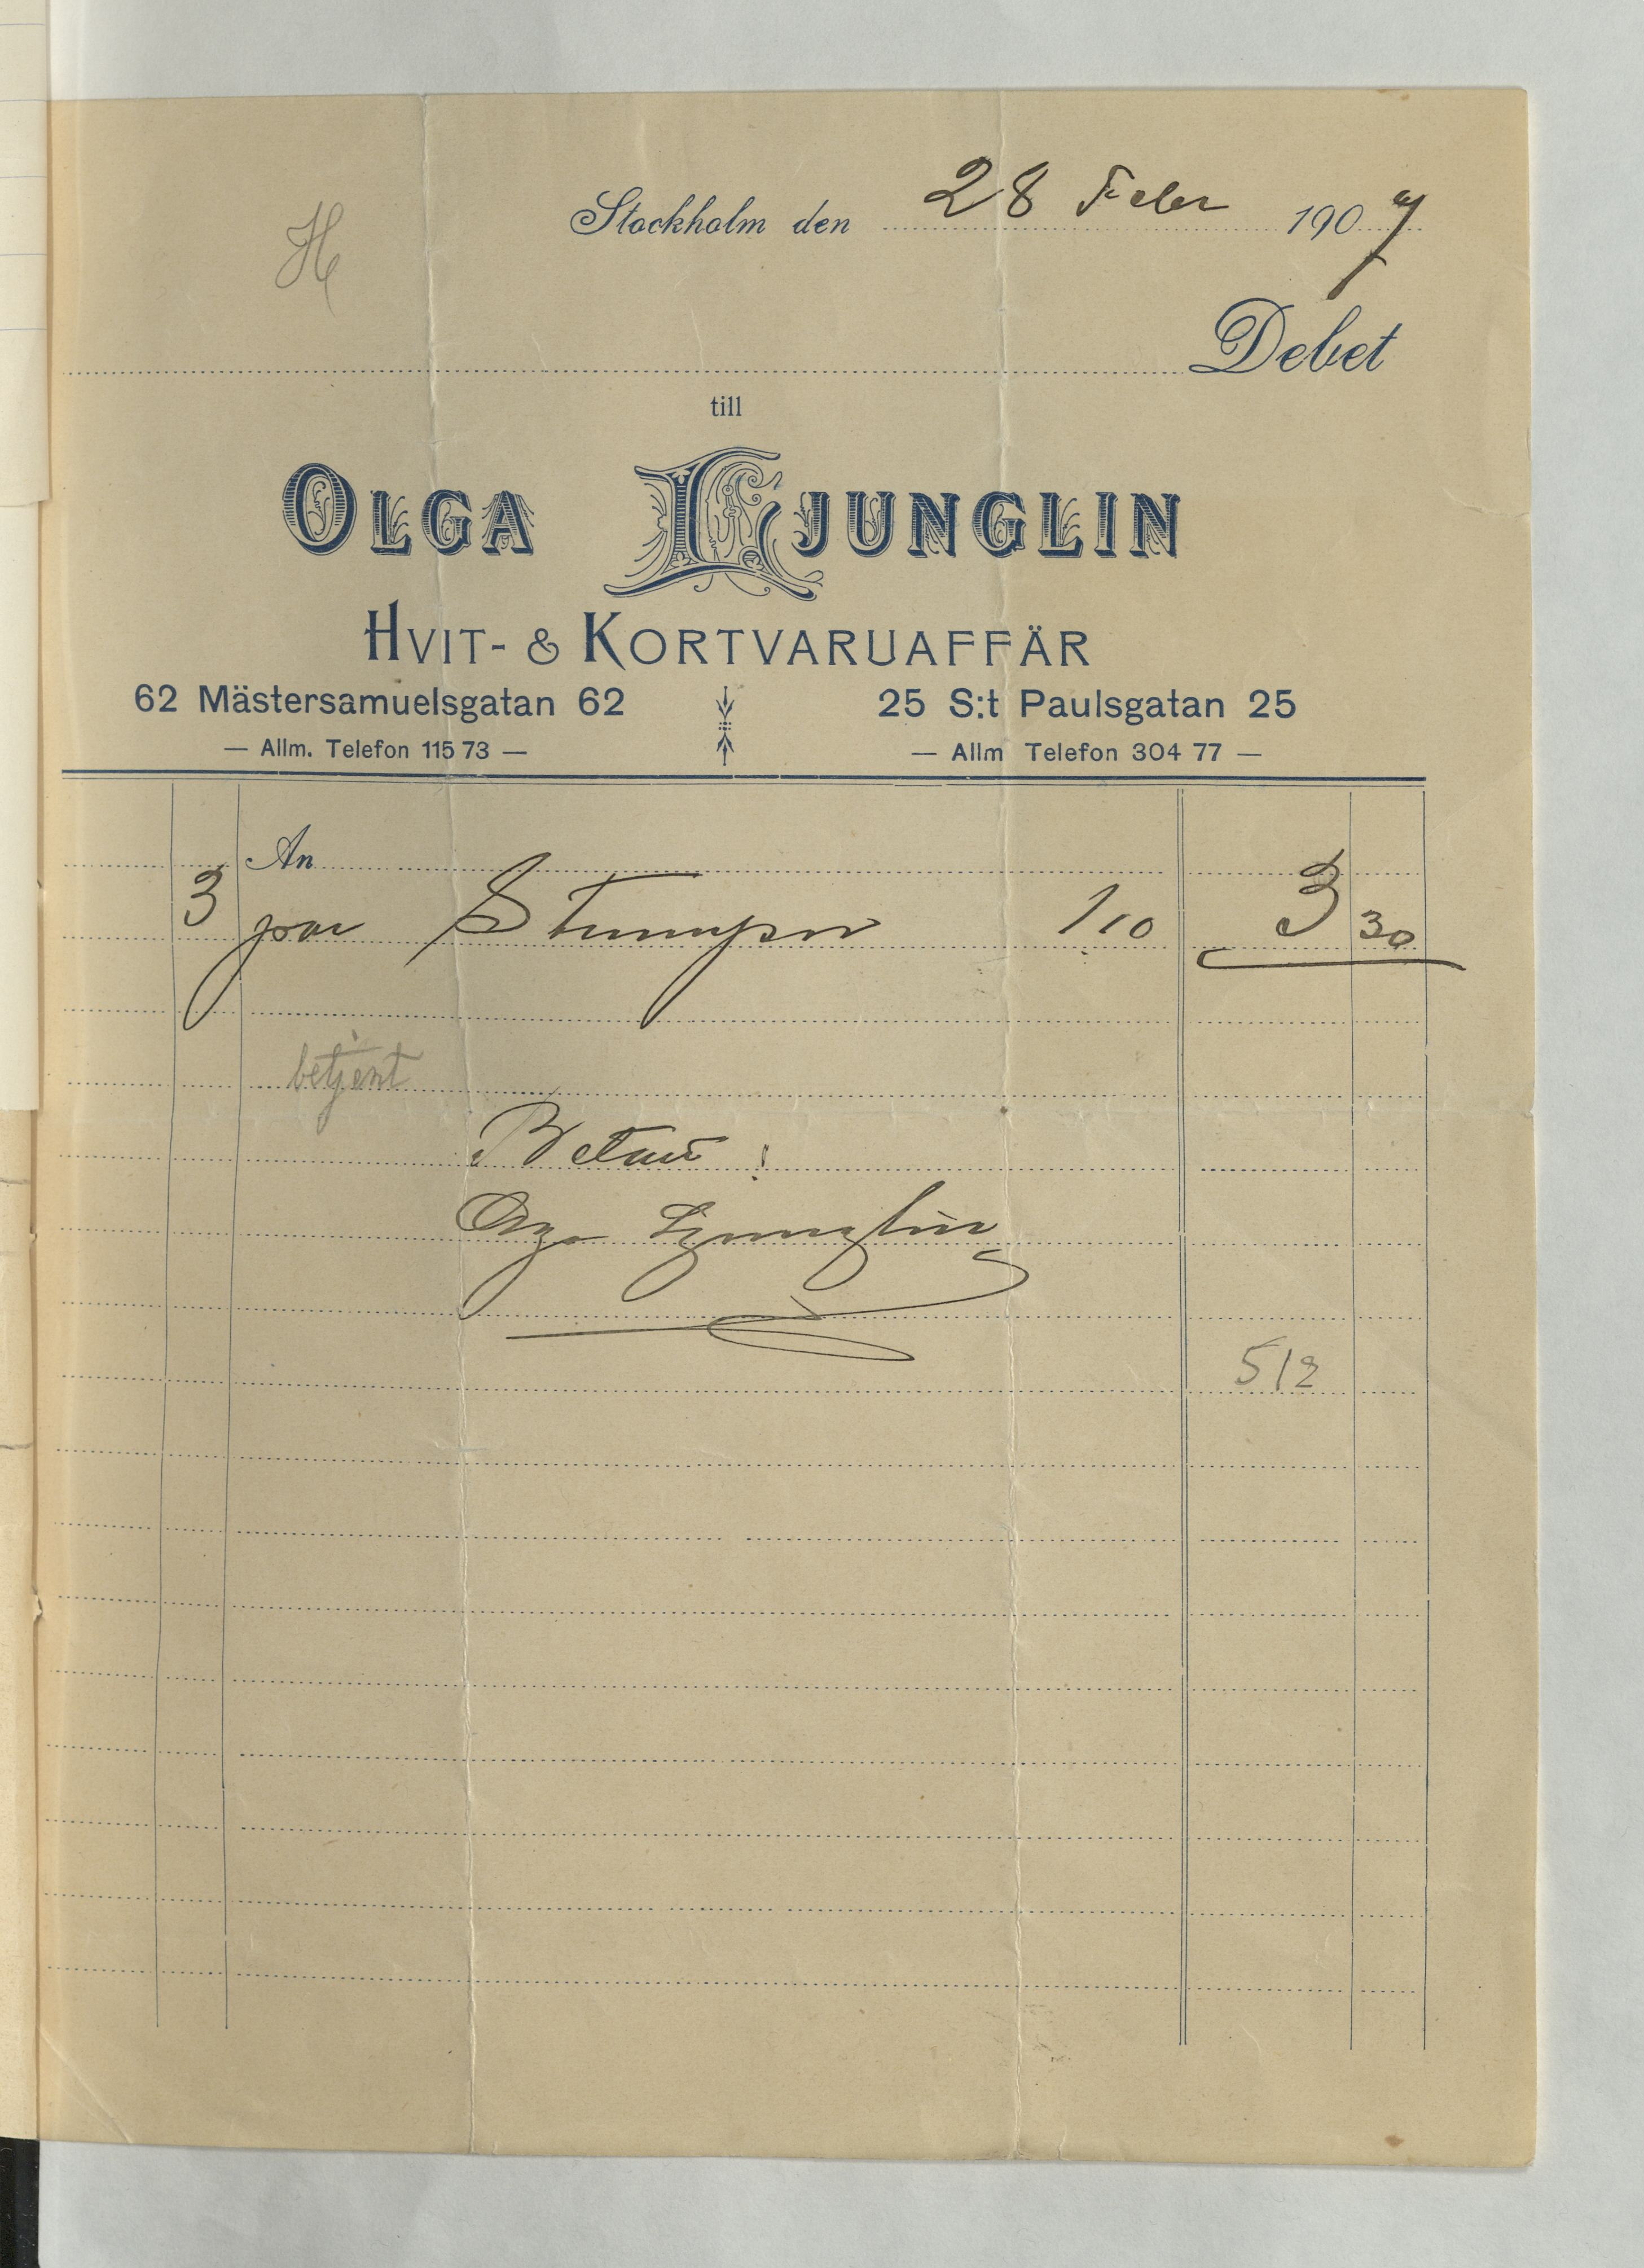 H
Stockholm den 28 Febr 1907
Debet
till
OLGA LJUNGLIN
HVIT- & KORTVARUAFFÄR
62 Mästersamuelsgatan 62 25 S:t Paulsgatan 25
— Allm. Telefon 115 73 — — Allm Telefon 304 77 —
An
3 par Strumpor 1,10 3 30
betjent
Betalt!
Olga Ljunglin
512